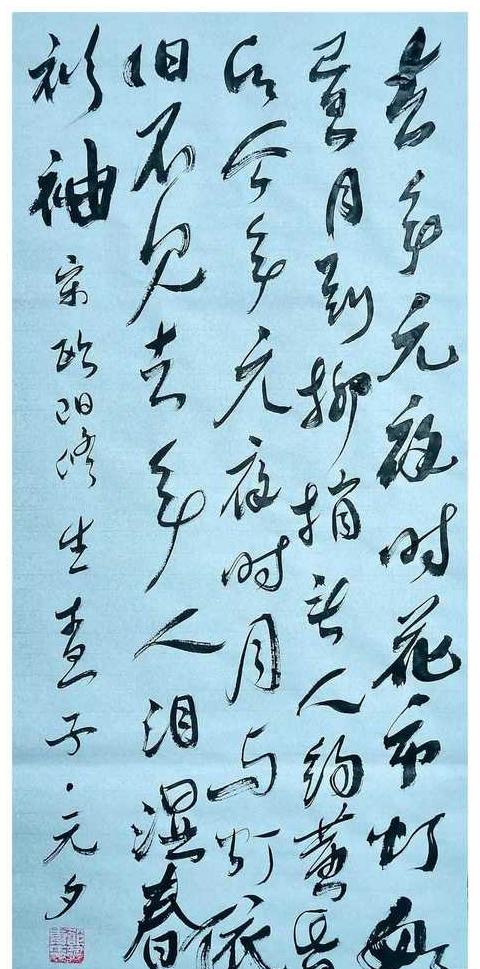 去年元夜时花市灯如
昼月到柳梢头人约黄昏
后今年元夜时月与灯依
旧不见去年人泪湿春
衫袖 宋欧阳修生查子·元夕